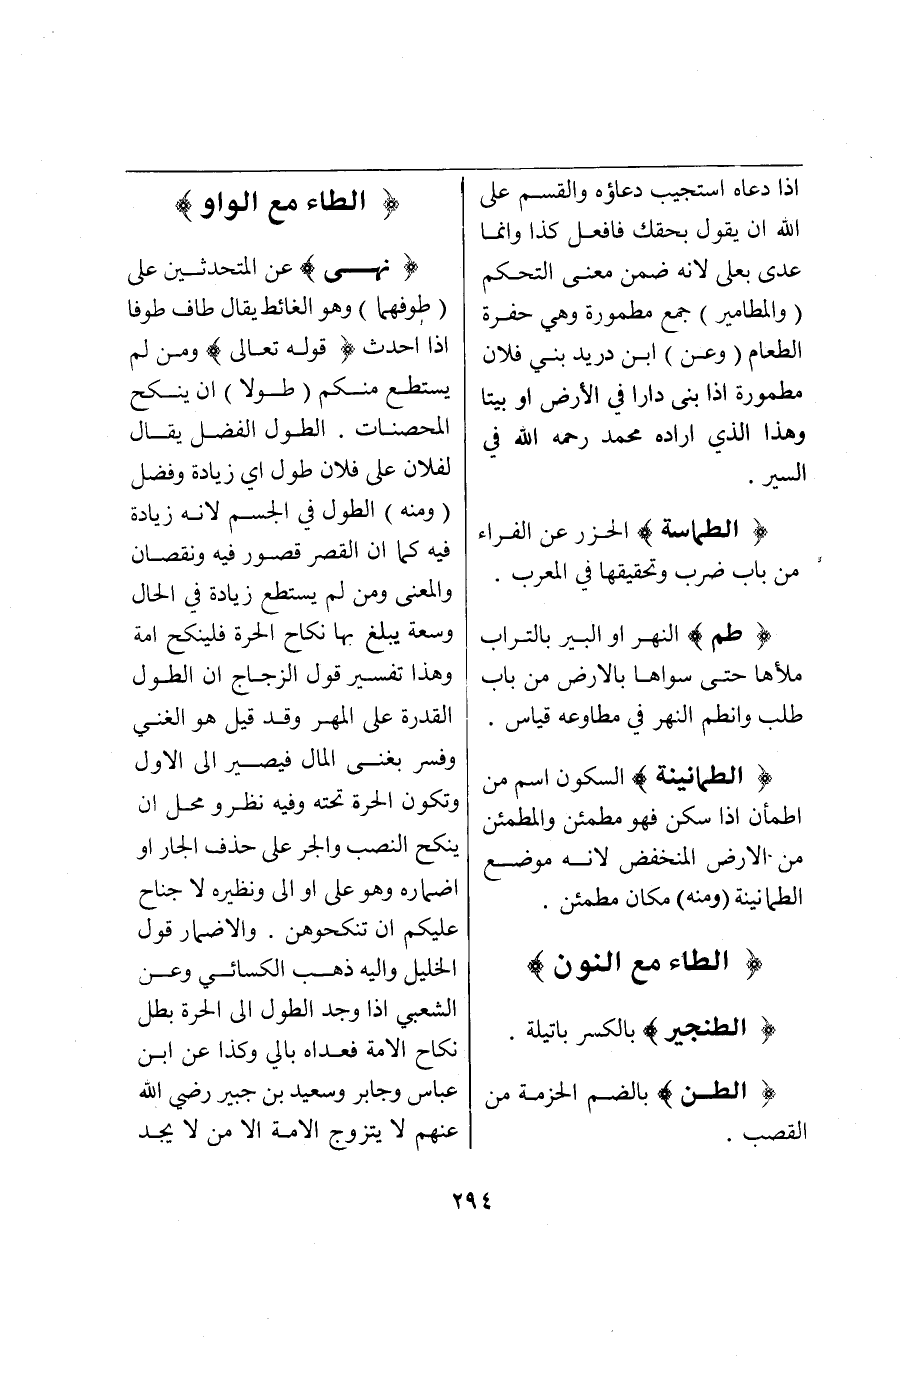 اذا دعاه استجيب دعاؤه والقسم على
الله ان يقول بحقك فافعل كذا وانما
عدى بعلى لانه ضمن معنى التحكم
( والمطامير ) جمع مطمورة وهي حفرة
الطعام ( وعن ) ابن دريد بنى فلان
مطمورة اذا بنى دارا في الأرض او بيتا
وهذا الذي اراده محمد رحمه الله في
السير .
﴿ الطماسة ﴾ الحزر عن الفراء
من باب ضرب وتحقيقها في المعرب .
﴿ طم ﴾ النهر او البير بالتراب
ملأها حتى سواها بالارض من باب
طلب وانطم النهر في مطاوعه قياس .
﴿ الطمانينة ﴾ السكون اسم من
اطمأن اذا سكن فهو مطمئن والمطمئن
من الارض المنخفض لانه موضع
الطمانينة (ومنه) مكان مطمئن .
﴿ الطاء مع النون ﴾
﴿ الطنجير ﴾ بالكسر باتيلة .
﴿ الطن ﴾ بالضم الحزمة من
القصب .
﴿ الطاء مع الواو ﴾
﴿ نهى ﴾ عن المتحدثين على
( طوفهما ) وهو الغائط يقال طاف طوفا
اذا احدث ﴿ قوله تعالى ﴾ ومن لم
يستطع منكم ( طولا ) ان ينكح
المحصنات . الطول الفضل يقال
لفلان على فلان طول اي زيادة وفضل
( ومنه ) الطول في الجسم لانه زيادة
فيه كما ان القصر قصور فيه ونقصان
والمعنى ومن لم يستطع زيادة في الحال
وسعة يبلغ بها نكاح الحرة فلينكح امة
وهذا تفسير قول الزجاج ان الطول
القدرة على المهر وقد قيل هو الغني
وفسر بغنى المال فيصير الى الاول
وتكون الحرة تحته وفيه نظر و محل ان
ينكح النصب والجر على حذف الجار او
اضماره وهو على او الى ونظيره لا جناح
عليكم ان تنكحوهن . والاضمار قول
الخليل واليه ذهب الكسائي وعن
الشعبي اذا وجد الطول الى الحرة بطل
نكاح الامة فعداه بالى وكذا عن ابن
عباس وجابر وسعيد بن جبير رضي الله
عنهم لا يتزوج الامة الا من لا يجد
٢٩٤